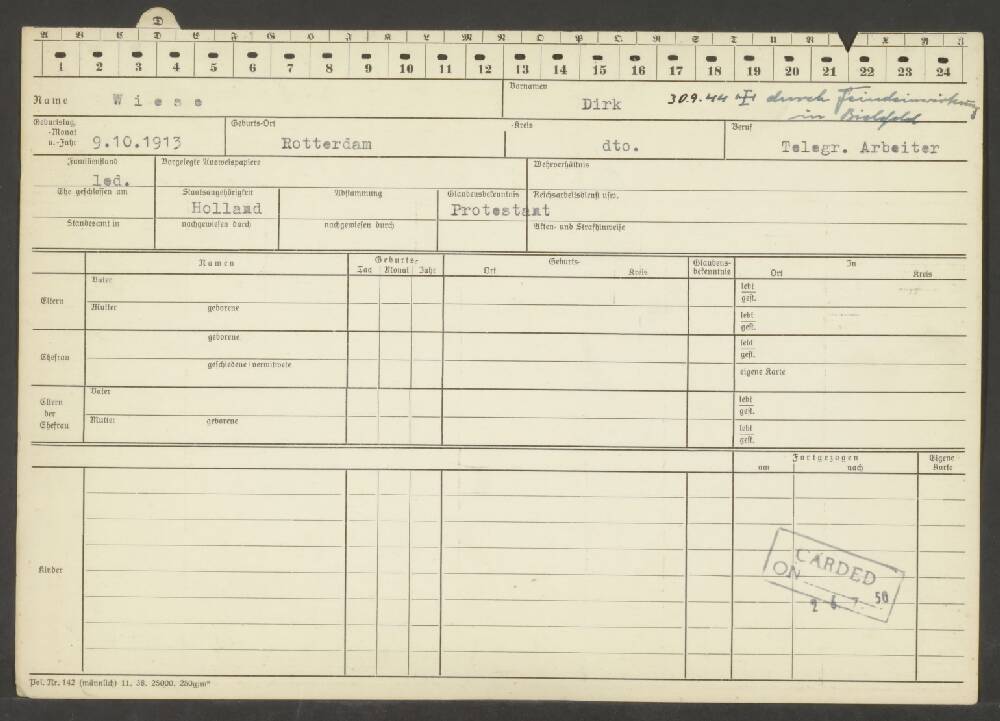 D
A B C D E F G H J K L M N O P Q R S T U V W X Y Z
1 2 3 4 5 6 7 8 9 10 11 12 13 14 15 16 17 18 19 20 21 22 23 24
Name Wiese Vornamen Dirk 30.9.44 durch Feindeinwirkung
in Bielefeld
Geburtstag, -Monat u. -Jahr 9.10.1913 Geburts-Ort Rotterdam -Kreis dto. Beruf Telegr. Arbeiter
Familienstand led. Vorgelegte Ausweispapiere Wehrverhältnis
Ehe geschlossen am Staatsangehörigkeit Holland Abstammung Glaubensbekenntnis Protestant Reichsarbeitsdienst usw.
Standesamt in nachgewiesen durch nachgewiesen durch Akten- und Strafhinweise
Namen Geburts- Geburts- Glaubens- In
Tag Monat Jahr Ort Kreis bekenntnis Ort Kreis
Eltern Vater lebt
gest.
Mutter geborene lebt
gest.
Ehefrau geborene lebt
gest.
geschiedene verwitwete eigene Karte
Eltern der Ehefrau Vater lebt
gest.
Mutter geborene lebt
gest.
Fortgezogen Eigene
am nach Karte
Kinder
CARDED
ON
2 6 7 50
Pol. Nr. 142 (männlich) 11. 38. 25000.